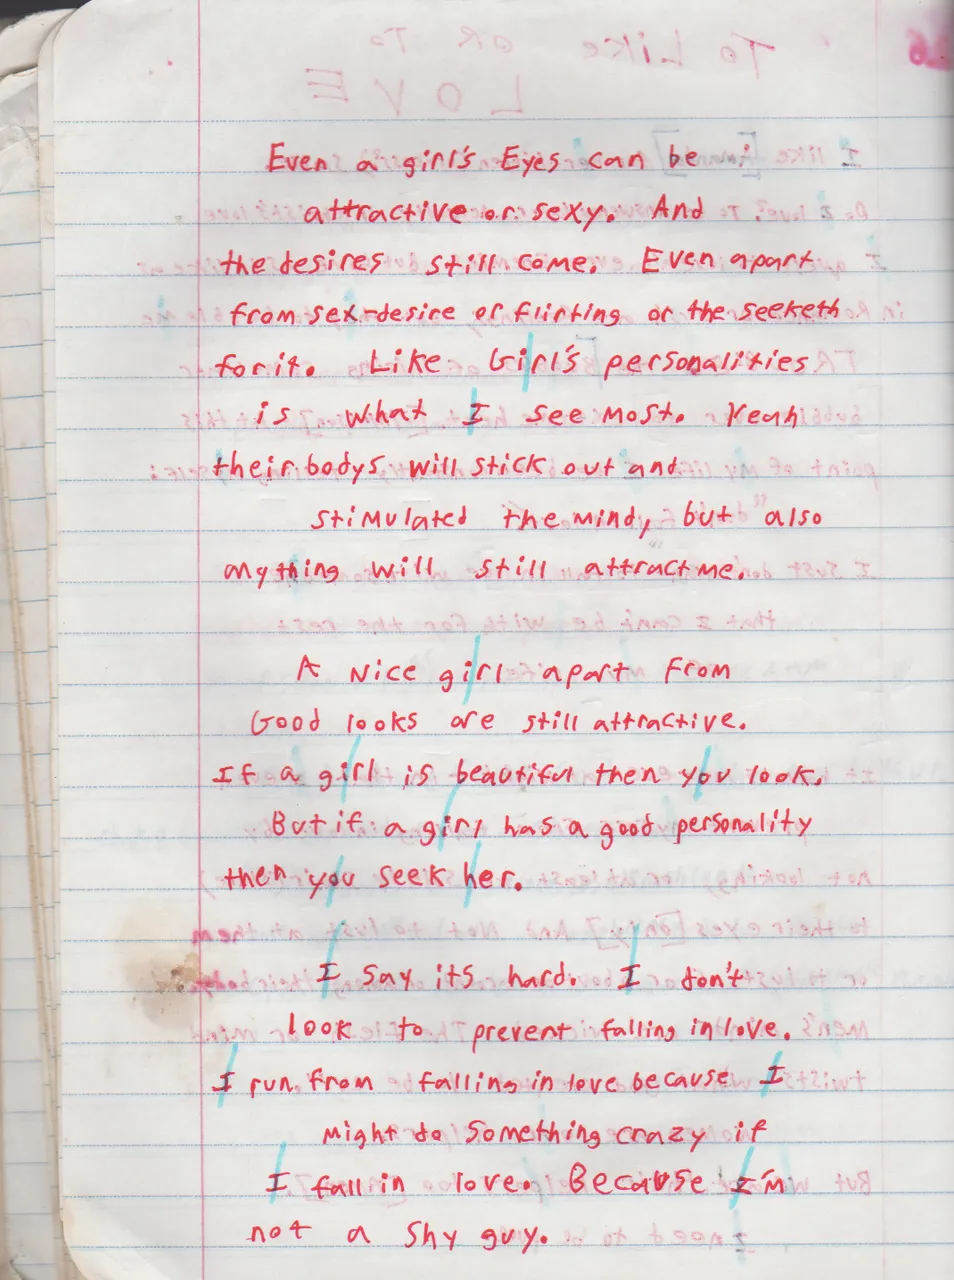 Even a girl's Eyes can be
attractive or sexy. And
the desires still come. Even apart
from sex-desire or flirting or the seeketh
for it. Like Girl's personalities
is what I see most. Yeah
their bodys will stick out and
stimulated the mind, but also
anything will still attract me.
A Nice girl apart From
Good looks are still attractive.
If a girl is beautiful then you look.
But if a girl has a good personality
then you seek her.
I say its hard. I don't
look to prevent falling in love.
I run from falling in love because I
might do something crazy if
I fall in love. Because I'm
not a shy guy.